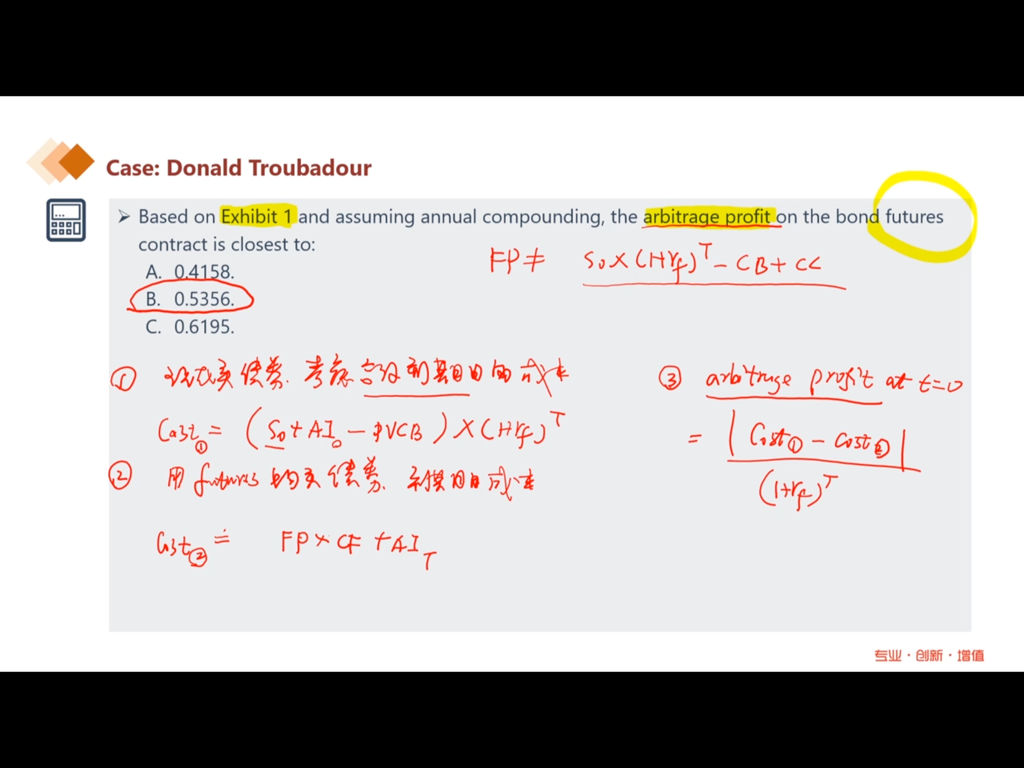 Case: Donald Troubadour
➢ Based on Exhibit 1 and assuming annual compounding, the arbitrage profit on the bond futures
contract is closest to:
A. 0.4158.
B. 0.5356.
C. 0.6195.
FP ≠ S₀×(1+rf)ᵀ - CB + CC
① 现在买债券. 考虑 到期日的成本
Cost① = (S₀+AI₀-PVCB)×(1+rf)ᵀ
② 用 futures 购买债券. 到期日成本
Cost② = FP×CF+AI_T
③ arbitrage profit at t=0
= |Cost① - Cost②|
(1+rf)ᵀ
专业·创新·增值